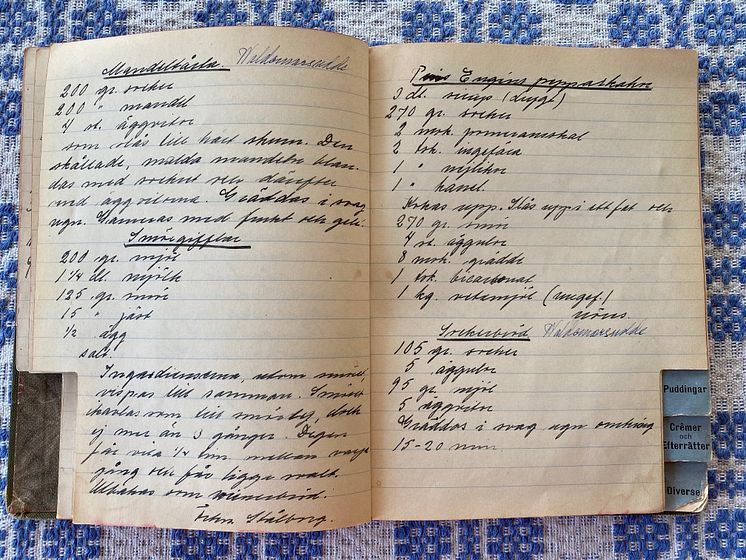 Mandeltårta. Waldemarsudde
200 gr. socker
200 " mandel
4 st. äggvitor
som slås till hårt skum. Den
skållade, malda mandeln blan-
das med sockret och därefter
med äggvitorna. Gräddas i svag
ugn. Garneras med frukt och gelé.
Smörgifflar
200 gr. mjöl
1 1/4 dl. mjölk
125 gr. smör
15 " jäst
1/2 ägg
salt.
Ingredienserna, utom smöret,
vispas till samman. Smöret
kavlas som till smördeg, dock
ej mer än 3 gånger. Degen
får vila 1/4 tim mellan varje
gång och får ligga kallt.
Utbakas som wienerbröd.
Stålborg.
Prins Eugens pepparkakor
3 dl. sirap (ljus)
270 gr. socker
2 msk. pomeransskal
2 tsk. ingefära
1 " nejlikor
1 " kanel
Kokas upp. Slås upp i ett fat och
270 gr. smör
4 st. äggulor
8 msk. grädde
1 tsk. bicarbonat
1 kg. vetemjöl (ungef.)
röres
Sockerbröd Waldemarsudde
105 gr. socker
5 äggulor
95 gr. mjöl
5 äggvitor
Gräddas i svag ugn omkring
15-20 min
Puddingar
Crêmer
och
Efterrätter
Diverse